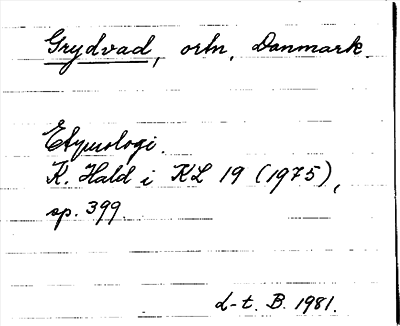 Grydvad, ortn. Danmark.
Etymologi.
K. Hald i KL 19 (1975),
sp. 399.
L-t. B. 1981.